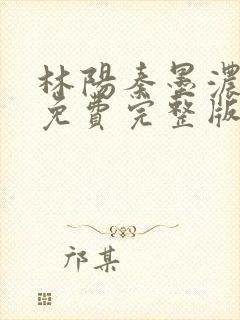 林陽秦墨濃
免費完整版
邝某